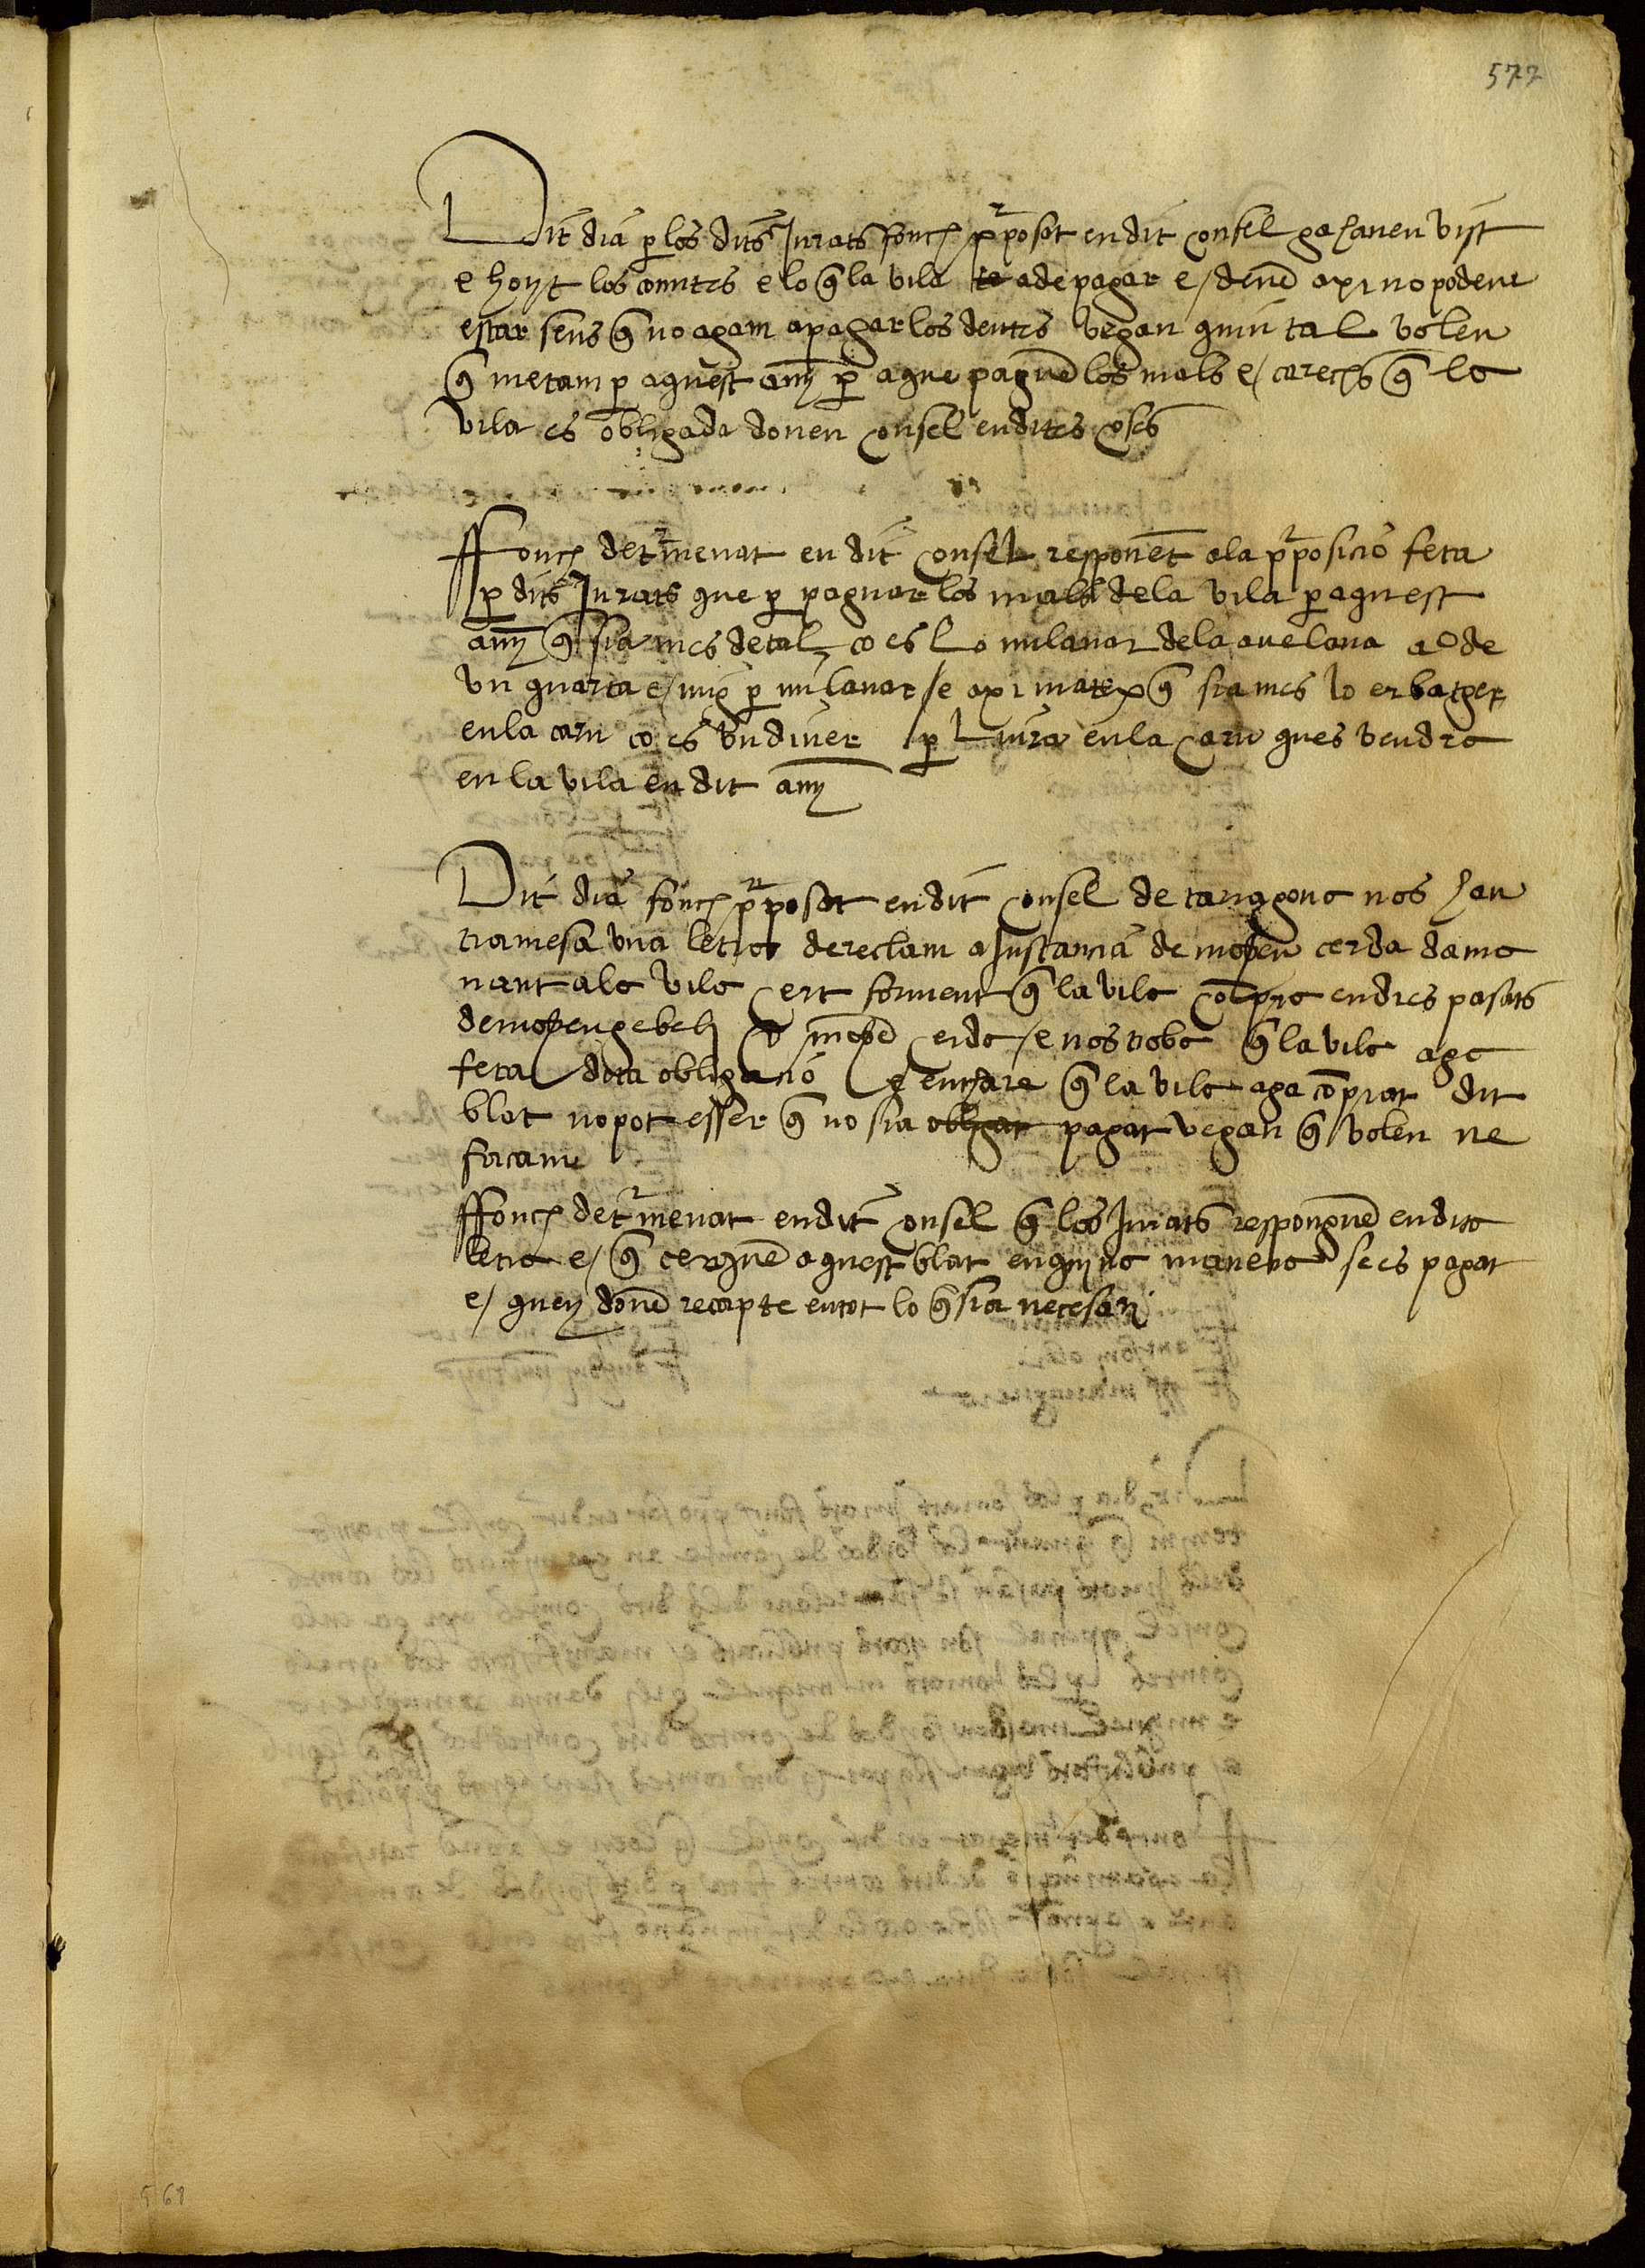 577
Dit dia p los dits Jurats fonch pposat en dit consel ga haueu vist
e hoyt los comtes e lo q̄ la vila te a de pagar e / deuē axi no podem
estar sens q̄ no agam a pagar los deutes vegan quin tal volen
q̄ metam p aquest any p a que paguē los mals e / carechs q̄ la
vila es obligada donen consel en dites coses
Ffonch detrmenat en dit consel responēt a la pposicio feta
p dits Jurats que p paguar los mals de la vila p aquest
any q̄ sia mes de tal co es lo milanar de la auelana a o de
vn quarta e / mig p milanar / e axi matex q̄ sia mes lo erbatger
en la carn co es vn diner p liura en la carn ques vendra
en la vila en dit any
Dit dia fonch pposat en dit consel de taragona nos han
tramesa vna letra de reclam a Instancia de mosen cerda dama
nant a la vila cert forment q̄ la vila cōpra en dies pasats
de mosen gebeli mosē cerda / e nos troba q̄ la vila aga
feta dita obligacio e encara q̄ la vila aga cōprat dit
blat no pot esser q̄ no sia obligat pagat vegan q̄ volen ne
facam
Ffonch detrmenat en dit consel q̄ los Jurats responguē en dita
letra e / q̄ cerquē aquest blat en quina manera se es pagat
e / quey donē recapte en tot lo q̄ sia necesari
568